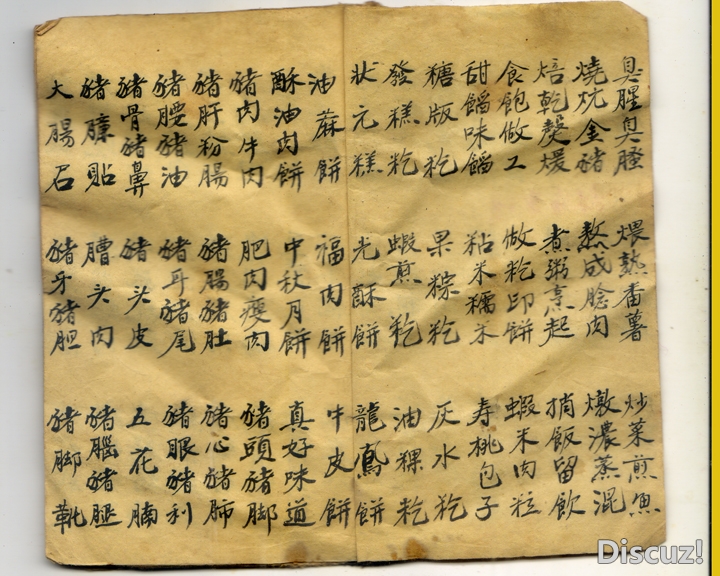 臭腥臭臊 煨熟番薯 炒菜煎魚
燒炆金豬 熬成脍肉 燉濃蒸混
焙乾煖 煮粥烹起 捎飯留飲
食飽做工 做籺印餅 蝦米肉粒
甜餡味餡 粘米糯米 寿桃包子
糖版籺 果粽籺 灰水籺
發糕籺 蝦煎籺 油粿籺
狀元糕 光酥餅 龍鳳餅
油蔴餅 福肉餅 牛皮餅
酥油肉餅 中秋月餅 真好味道
豬肉牛肉 肥肉瘦肉 豬頭豬脚
豬肝粉腸 豬腸豬肚 豬心豬肺
豬腰豬油 豬耳豬尾 豬眼豬利
豬骨豬鼻 豬头皮 五花腩
豬貼 头肉 豬腦豬腿
大腸石 豬牙豬胆 豬脚靴
Discuz!